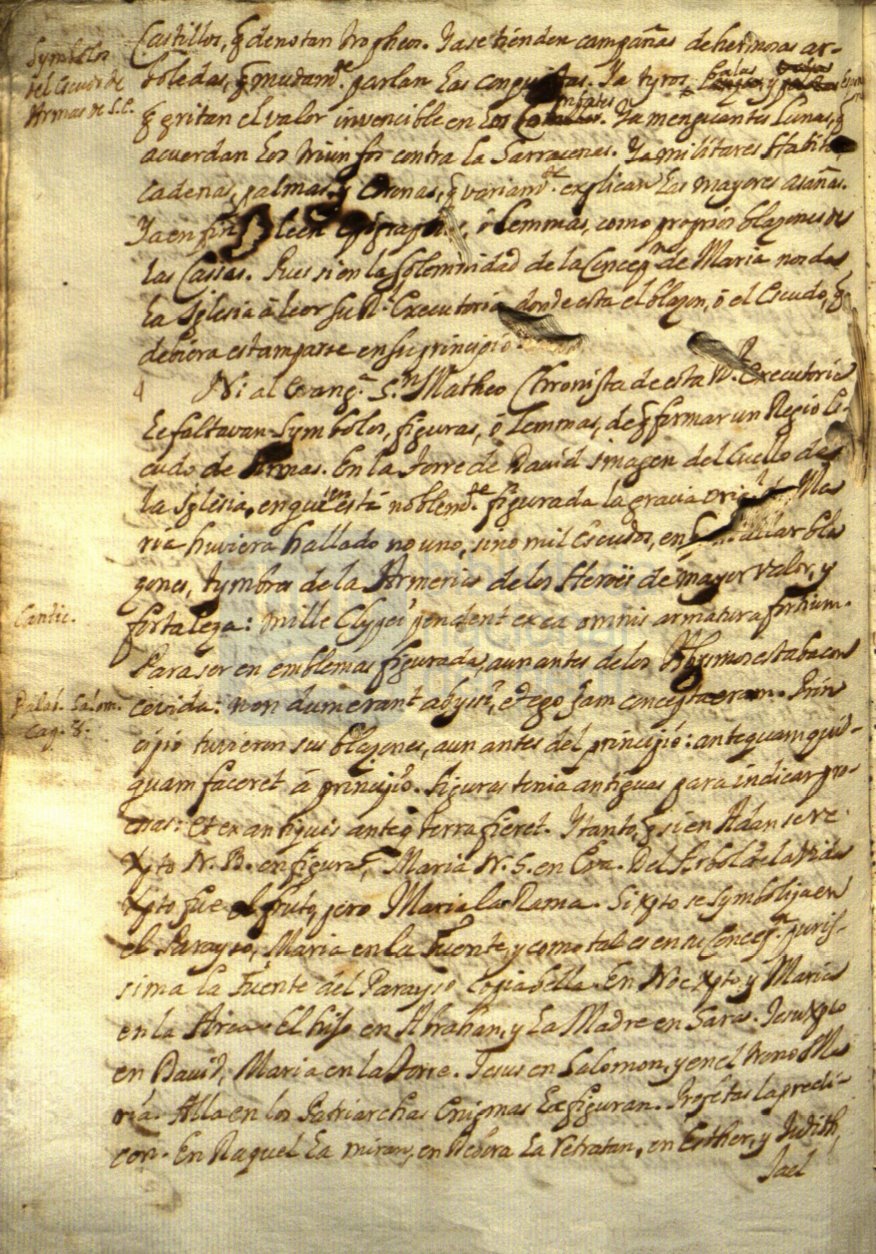 Symbolos
del Escudo de
Armas de S.E.
Castillos, q̃ denotan tropheos. Ya se tienden campañas de hermosas ar-
boledas, q̃ mudam.te parlan las conquistas. Ya tyros, balas, y
q̃ gritan el valor invencible en los combates. Ya menguantes Lunas, q̃
acuerdan los triunfos contra la Sarracenas. Ya militares Habitos,
cadenas, palmas, y Coronas, q̃ variam.te explican las mayores asañas.
Ya en fin se leen Epigraphes, ò Lemmas, como proprios blazones de
las Cassas. Pues si en la solemnidad de la Concep.n de Maria nos da
la Iglesia à leer su R.l Executoria, donde esta el blazon, ò el Escudo, q̃
debiera estamparse en su principio.
4 Ni al Evang.a S.n Matheo Chronista de esta R.l Executoria
le faltavan Symbolos, figuras, ò Lemmas, de q̃ formar un Regio Es-
cudo de Armas. En la Torre de David imagen del Cuello de
la Iglesia, en quien està noblem.te figurada la gracia orig.l de Ma
ria huviera hallado no uno, sino mil escudos, en q̃ hallar bla
zones, tymbres de la Armeria de los Heroës de mayor valor, y
Cantic.
fortaleza: mille Clypei pendent ex ea omnis armatura fortium.
Para ser en emblemas figurada, aun antes de los Abysmos estaba con
Palat. Salom.
Cap. 8.
cevida: non dum erant abyssi, et ego jam concepta eram. Prin
cipio tuvieron sus blazones, aun antes del principio: antequam quid-
quam faceret à principio. Figuras tenia antiguas para indicar pro-
esas: et ex antiquis ante q̃ terra fieret. Y tanto, q̃ si en Adan se ve
Xpto N. B. en figura, Maria N. S. en Eva. Del Arbol de la Vida
Xpto fue el fruto, pero Maria la Rama. Si Xpto se symboliza en
el Parayso, Maria en la Fuente, y como tal es en su Concep.n puris-
sima la Fuente del Parayso Copia bella. En Noe Xpto, y Maria
en la Arca. El hijo en Abrahan, y La Madre en Sara. Jesuxpto
en David, Maria en la Torre. Jesus en Salomon, y en el trono Ma
ria. Alla en los Patriarchas Enigmas La figuran. Profetas la predi-
can. En Raquel La miran, en Debora La retratan, en Esther, y Judith,
Jael